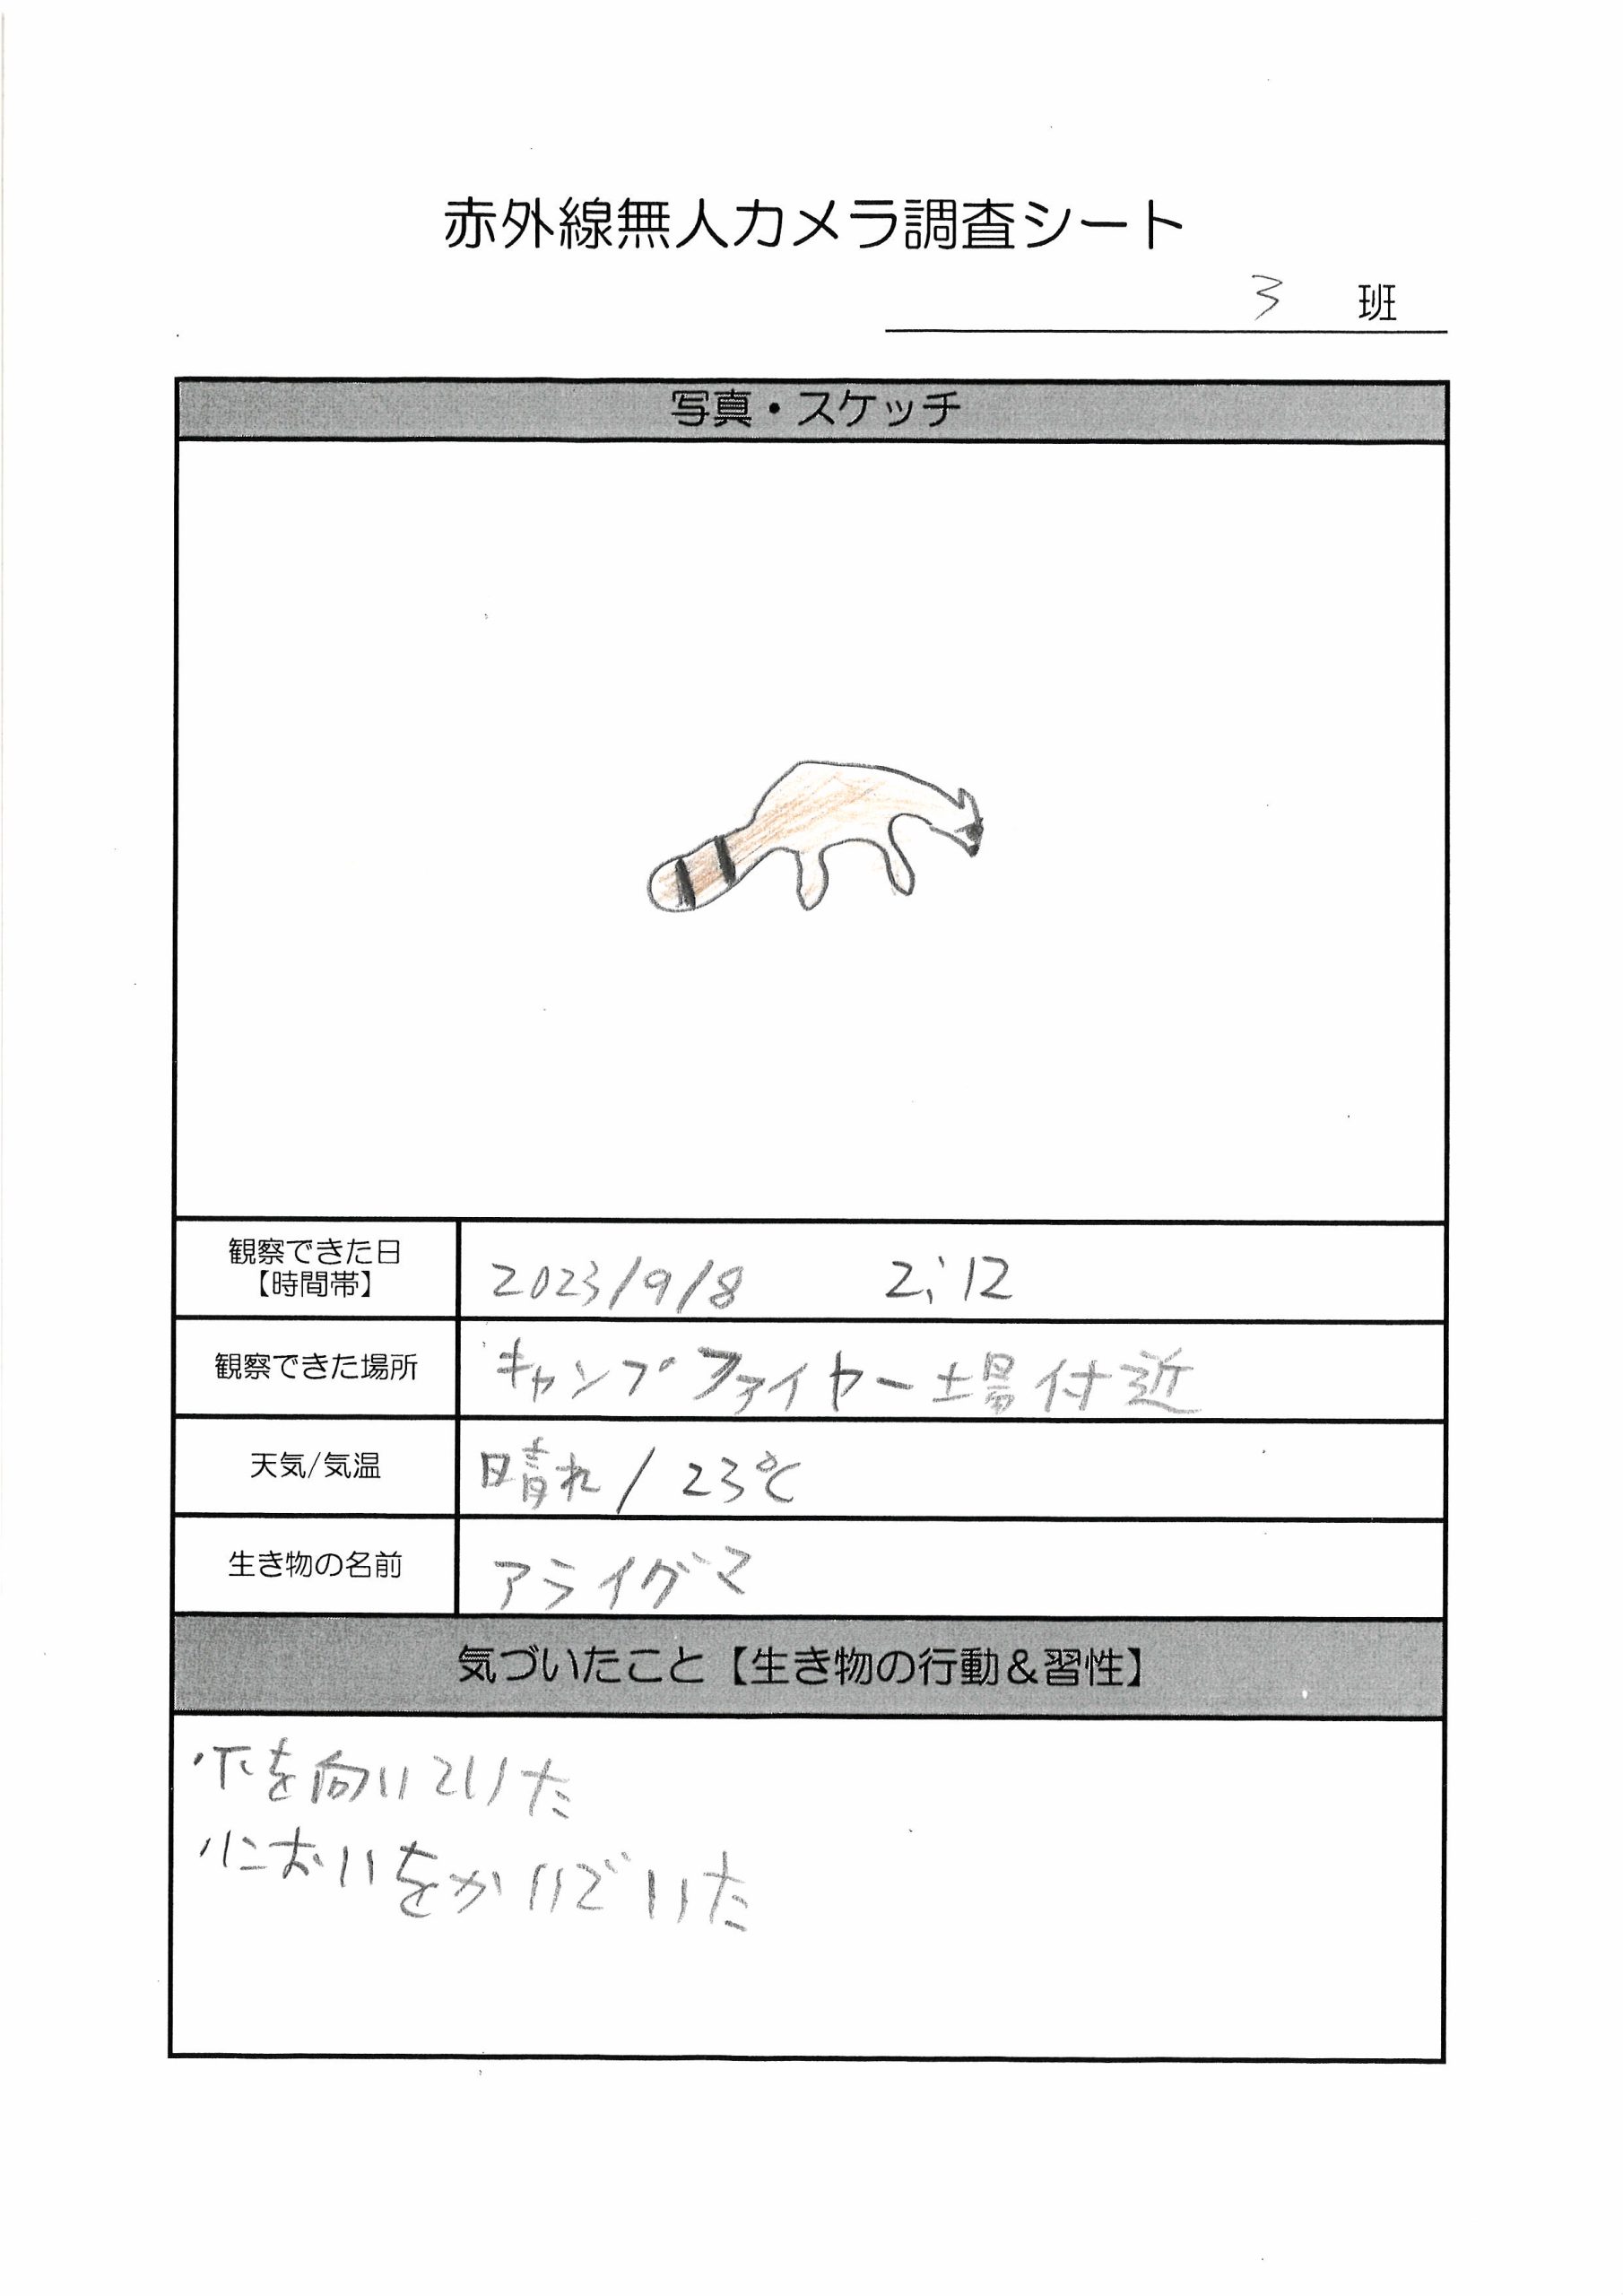 赤外線無人カメラ調査シート
3 班
写真・スケッチ
観察できた日
【時間帯】
2023/9/8 2:12
観察できた場所
キャンプファイヤー場付近
天気/気温
晴れ/23℃
生き物の名前
アライグマ
気づいたこと【生き物の行動&習性】
・下を向いていた
・においをかいでいた